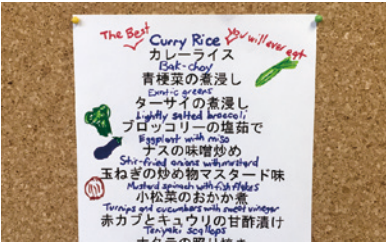 The Best
Curry Rice
You will ever eat
カレーライス
Bak-choy
青梗菜の煮浸し
Exotic greens
ターサイの煮浸し
Lightly salted broccoli
ブロッコリーの塩茹で
Eggplant with miso
ナスの味噌炒め
Stir-fried onions with mustard
玉ねぎの炒め物マスタード味
Mustard spinach with fish flakes
小松菜のおかか煮
Turnips and cucumbers with sweet vinegar
赤カブとキュウリの甘酢漬け
Teriyaki scallops
ホタテの照り焼き